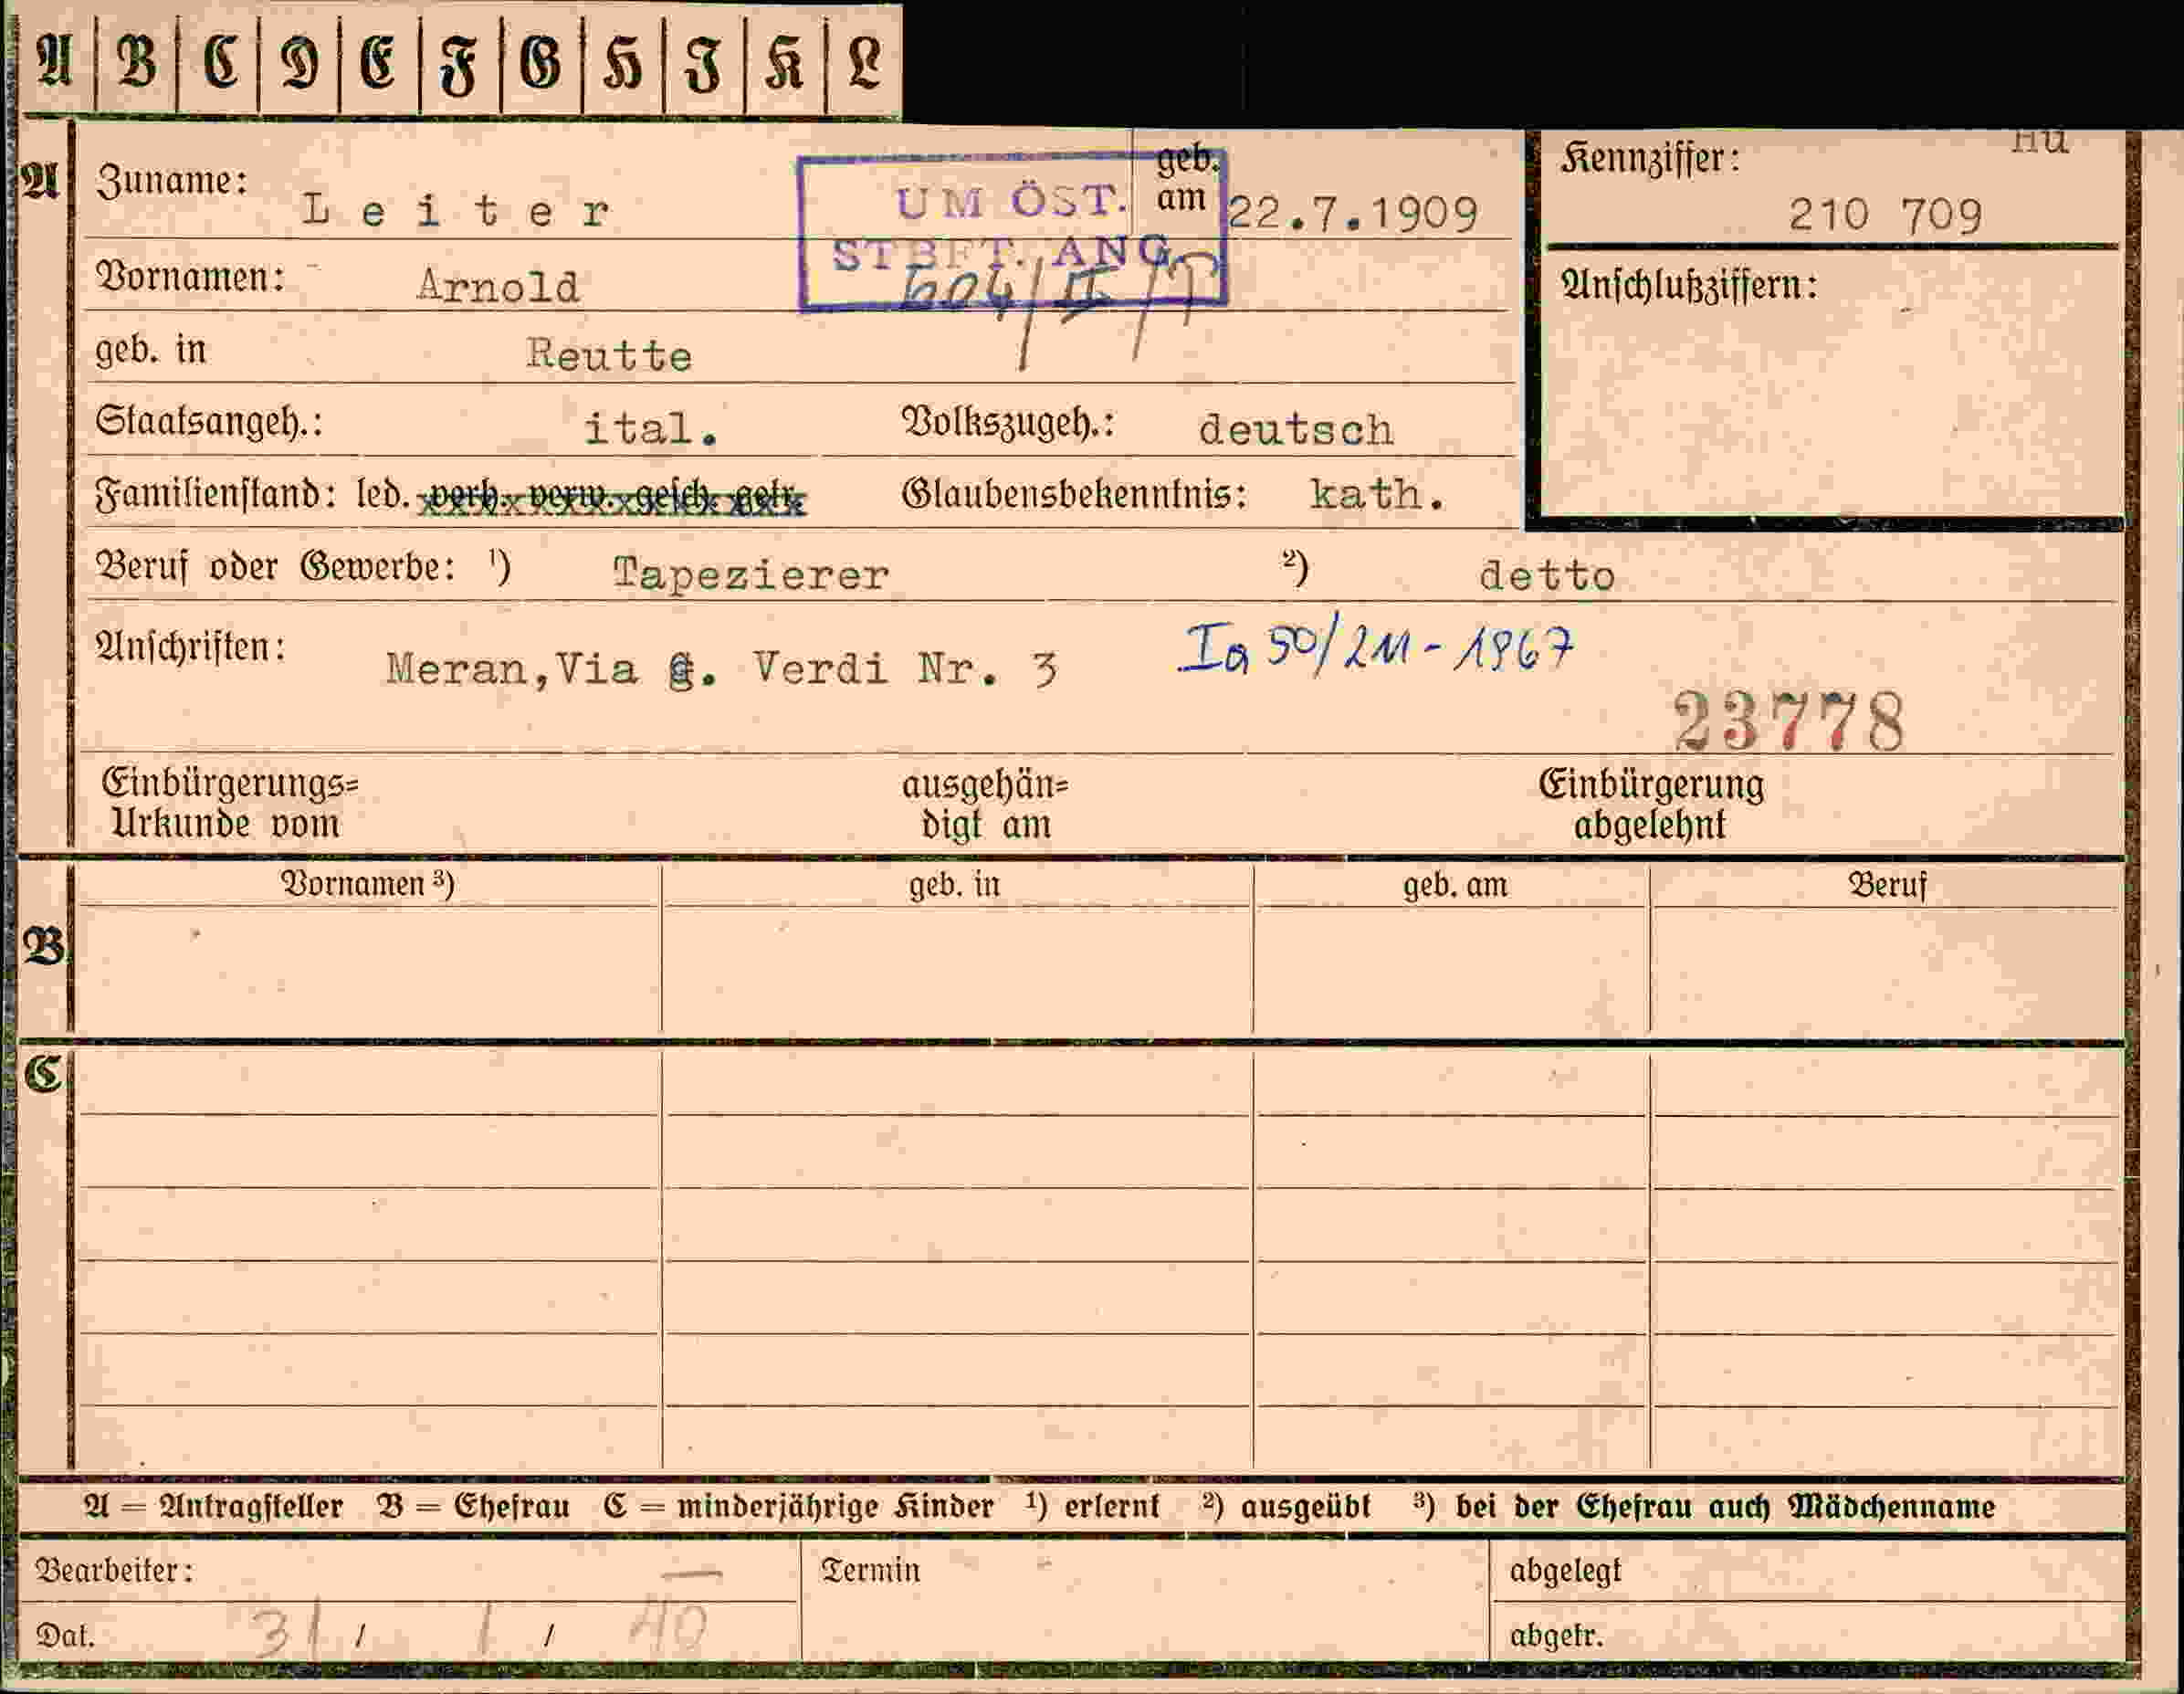 A B C D E F G H J K L
A
Zuname: Leiter
geb. am 22.7.1909
UM ÖST.
STBFT. ANG.
604/II/T
Kennziffer: 210 709
Vornamen: Arnold
Anschlußziffern:
geb. in Reutte
Staatsangeh.: ital. Volkszugeh.: deutsch
Familienstand: led. verh. verw. gesch. getr. Glaubensbekenntnis: kath.
Beruf oder Gewerbe: 1) Tapezierer 2) detto
Anschriften: Meran, Via G. Verdi Nr. 3
Ia 50/211-1967
23778
Einbürgerungs=
Urkunde vom
ausgehän=
digt am
Einbürgerung
abgelehnt
Vornamen 3) geb. in geb. am Beruf
B
C
A = Antragsteller B = Ehefrau C = minderjährige Kinder 1) erlernt 2) ausgeübt 3) bei der Ehefrau auch Mädchenname
Bearbeiter: — Termin abgelegt
Dat. 31 / 1 / 40 abgetr.